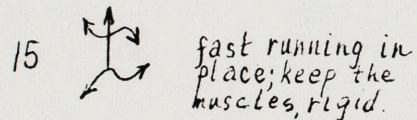 15
fast running in
place; keep the
muscles, rigid.